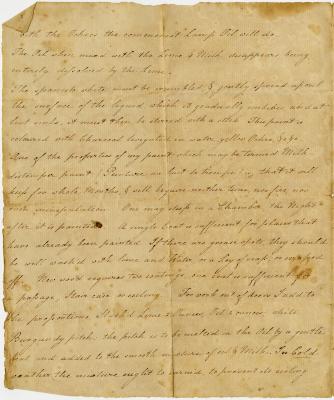 with the Ochres the commonest Lamp Oil will do.
The Oil when mixed with the Lime & Milk disappears being
entirely dissolved by the Lime.
The Spanish white must be crumbled & gently spread upon
the surface of the liquid which it gradually imbibes and at
last sinks, it must then be stirred with a stick This paint is
coloured with Charcoal levigated in water, yellow Ochre &c &c
One of the properties of my paint which may be termed Milk
distemper paint (Peinture au lait detrempe) is that it will
keep for whole Months, & will require neither time, nor fire nor
 One may sleep in a Chamber the Night
after it is painted A single Coat is sufficient for places that
have already been painted If there are grease spots, they should
be well washed with lime and Water or a Ley of soap, or scraped
off New wood requires two coatings, one Coat is sufficient for
a passage, Stair case or ceiling For work out of doors I add to
the proportions Slack'd Lime 2 Ounces, Oil 2 ounces white
Burgundy pitch, the pitch is to be melted in the Oil by a gentle
heat and added to the smooth mixture of & Milk. In Cold
weather the mixture ought to warmed, to prevent its cooling